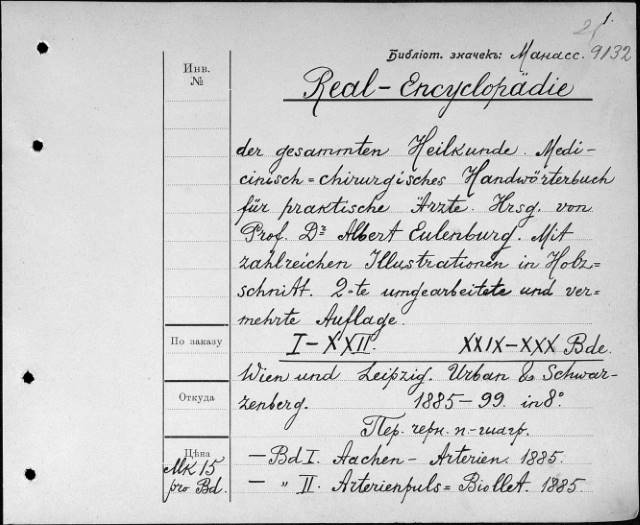 25 1.
Библіот. значекъ: Манасс. 9132
Инв.
№
Real-Encyclopädie
der gesammten Heilkunde. Medi-
cinisch=chirurgisches Handwörterbuch
für praktische Ärzte. Hrsg. von
Prof. Dr Albert Eulenburg. Mit
zahlreichen Illustrationen in Holz=
schnitt. 2-te umgearbeitete und ver=
mehrte Auflage.
По заказу
I-XXII. XXIX-XXX Bde.
Wien und Leipzig. Urban & Schwar-
Откуда
zenberg. 1885-99. in 8°.
Пер. черн. п-шагр.
Цѣна
Mk 15
pro Bd.
— Bd I. Aachen - Arterien. 1885.
— " II. Arterienpuls = Biollet. 1885.